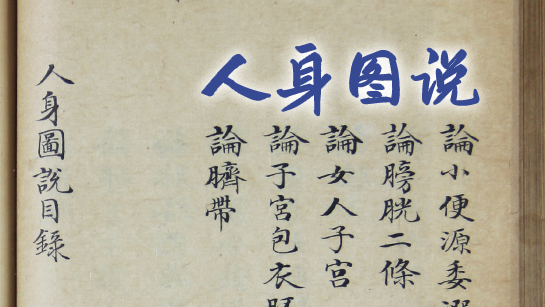 人身图说
論小便源委
論膀胱二條
論女人子宮
論子宮包衣
論臍帶
人身圖說目錄